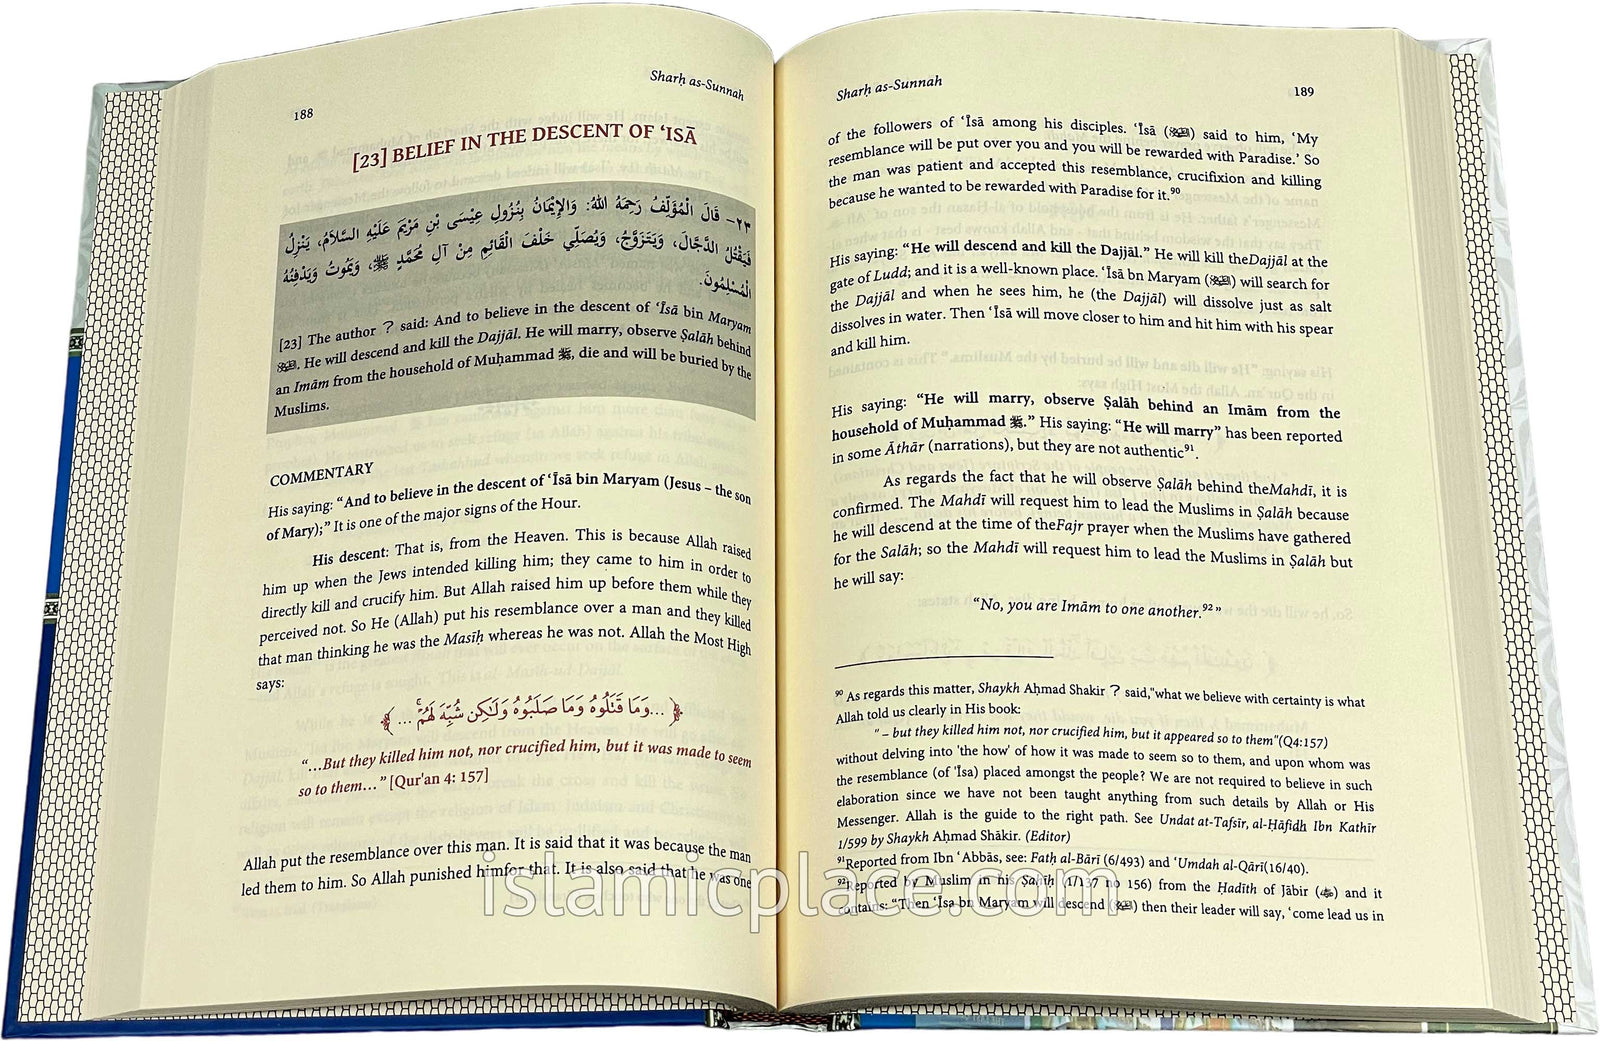 188
Sharḥ as-Sunnah
[23] BELIEF IN THE DESCENT OF ‘ISĀ
٢٣– قَالَ الْمُؤَلِّفُ رَحِمَهُ اللهُ: وَالإِيْمَانُ بِنُزُولِ عِيْسَى بْنِ مَرْيَمَ عَلَيْهِ السَّلَامُ، يَنْزِلُ
فَيَقْتُلُ الدَّجَّالَ، وَيَتَزَوَّجُ، وَيُصَلِّي خَلْفَ الْقَائِمِ مِنْ آلِ مُحَمَّدٍ ﷺ، وَيَمُوتُ وَيَدْفِنُهُ
الْمُسْلِمُونَ.
[23] The author ? said: And to believe in the descent of ‘Īsā bin Maryam
. He will descend and kill the Dajjāl. He will marry, observe Ṣalāh behind
an Imām from the household of Muḥammad ﷺ, die and will be buried by the
Muslims.
COMMENTARY
His saying: “And to believe in the descent of ‘Īsā bin Maryam (Jesus – the son
of Mary);” It is one of the major signs of the Hour.
His descent: That is, from the Heaven. This is because Allah raised
him up when the Jews intended killing him; they came to him in order to
directly kill and crucify him. But Allah raised him up before them while they
perceived not. So He (Allah) put his resemblance over a man and they killed
that man thinking he was the Masīḥ whereas he was not. Allah the Most High
says:
﴿ ...وَمَا قَتَلُوهُ وَمَا صَلَبُوهُ وَلَٰكِن شُبِّهَ لَهُمْ ۚ ... ﴾
“...But they killed him not, nor crucified him, but it was made to seem
so to them...” [Qur'an 4: 157]
Allah put the resemblance over this man. It is said that it was because the man
led them to him. So Allah punished himfor that. It is also said that he was one
Sharḥ as-Sunnah
189
of the followers of ‘Īsā among his disciples. ‘Īsā () said to him, ‘My
resemblance will be put over you and you will be rewarded with Paradise.’ So
the man was patient and accepted this resemblance, crucifixion and killing
because he wanted to be rewarded with Paradise for it.⁹⁰
His saying: “He will descend and kill the Dajjāl.” He will kill theDajjāl at the
gate of Ludd; and it is a well-known place. ‘Īsā bn Maryam () will search for
the Dajjāl and when he sees him, he (the Dajjāl) will dissolve just as salt
dissolves in water. Then ‘Īsā will move closer to him and hit him with his spear
and kill him.
His saying: “He will marry, observe Ṣalāh behind an Imām from the
household of Muḥammad ﷺ.” His saying: “He will marry” has been reported
in some Āthār (narrations), but they are not authentic⁹¹.
As regards the fact that he will observe Ṣalāh behind theMahdī, it is
confirmed. The Mahdī will request him to lead the Muslims in Ṣalāh because
he will descend at the time of theFajr prayer when the Muslims have gathered
for the Salāh; so the Mahdī will request him to lead the Muslims in Ṣalāh but
he will say:
“No, you are Imām to one another.⁹²”
⁹⁰ As regards this matter, Shaykh Aḥmad Shakir ? said,"what we believe with certainty is what
Allah told us clearly in His book:
" – but they killed him not, nor crucified him, but it appeared so to them"(Q4:157)
without delving into 'the how' of how it was made to seem so to them, and upon whom was
the resemblance (of 'Īsa) placed amongst the people? We are not required to believe in such
elaboration since we have not been taught anything from such details by Allah or His
Messenger. Allah is the guide to the right path. See Undat at-Tafsīr, al-Ḥāfidh Ibn Kathīr
1/599 by Shaykh Aḥmad Shākir. (Editor)
⁹¹Reported from Ibn ‘Abbās, see: Fatḥ al-Bārī (6/493) and ‘Umdah al-Qārī(16/40).
⁹²Reported by Muslim in his Ṣaḥīḥ (1/137 no 156) from the Ḥadīth of Jābir () and it
contains: “Then ‘Īsa bn Maryam will descend () then their leader will say, ‘come lead us in
islamicplace.com